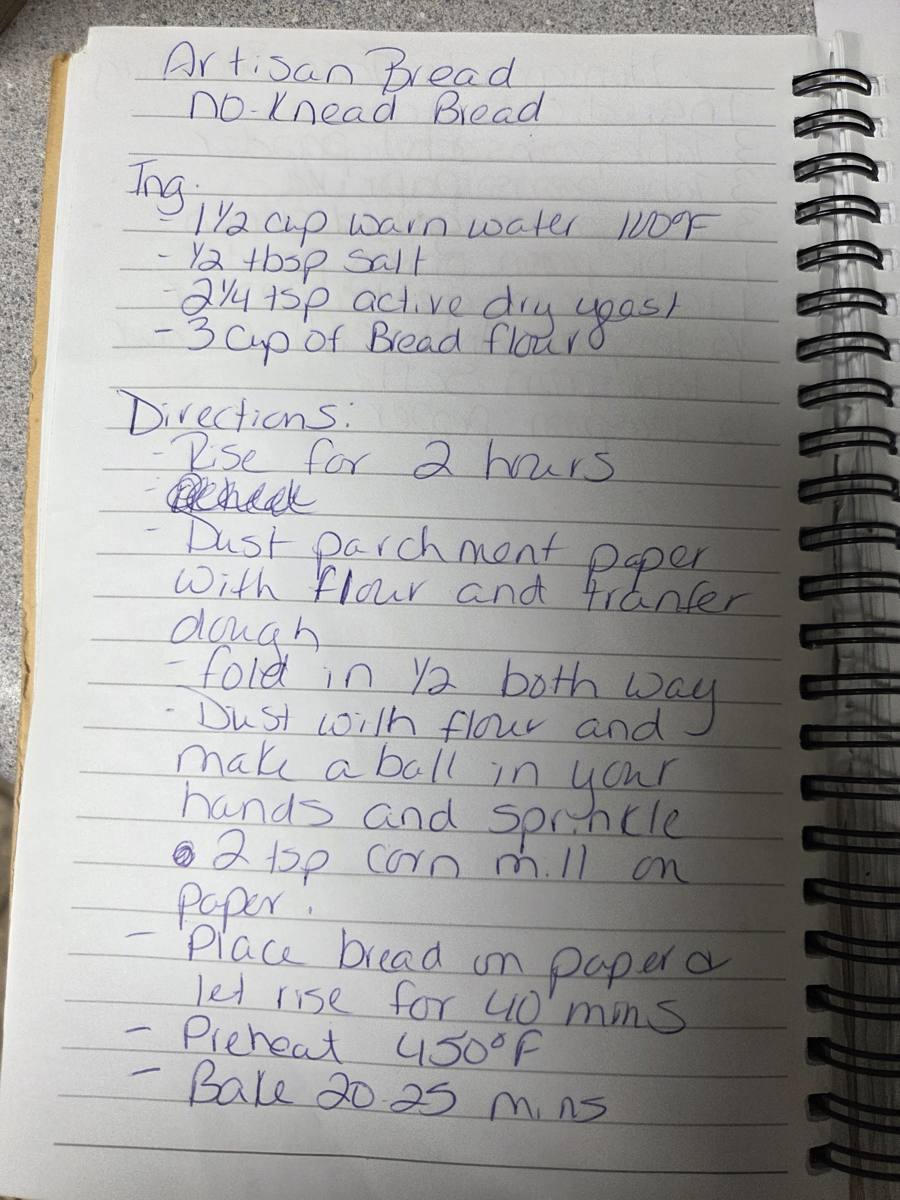 Artisan Bread
no-Knead Bread
Ing.
- 1 1/2 cup warn water 110°F
- 1/2 tbsp salt
- 2 1/4 tsp active dry yeast
- 3 Cup of Bread flour
Directions:
- Rise for 2 hours
-
- Dust parchment paper
with flour and tranfer
dough
- fold in 1/2 both way
- Dust with flour and
make a ball in your
hands and sprinkle
2 tsp corn mill on
paper.
- Place bread on paper &
let rise for 40 mins
- Preheat 450°F
- Bake 20-25 mins